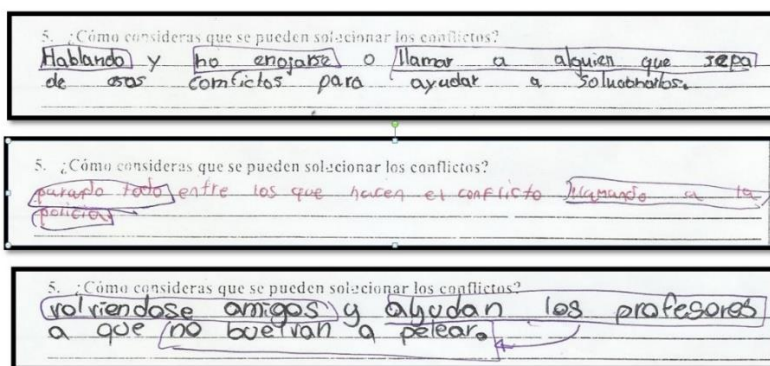 5. ¿Cómo consideras que se pueden solucionar los conflictos?
Hablando y no enojarse o llamar a alguien que sepa
de esos comfictos para ayudar a solucionarlos.
5. ¿Cómo consideras que se pueden solucionar los conflictos?
parando todo entre los que hacen el conflicto llamando a la
policia
5. ¿Cómo consideras que se pueden solucionar los conflictos?
volviendose amigos y ayudan los profesores
a que no buelvan a pelear.